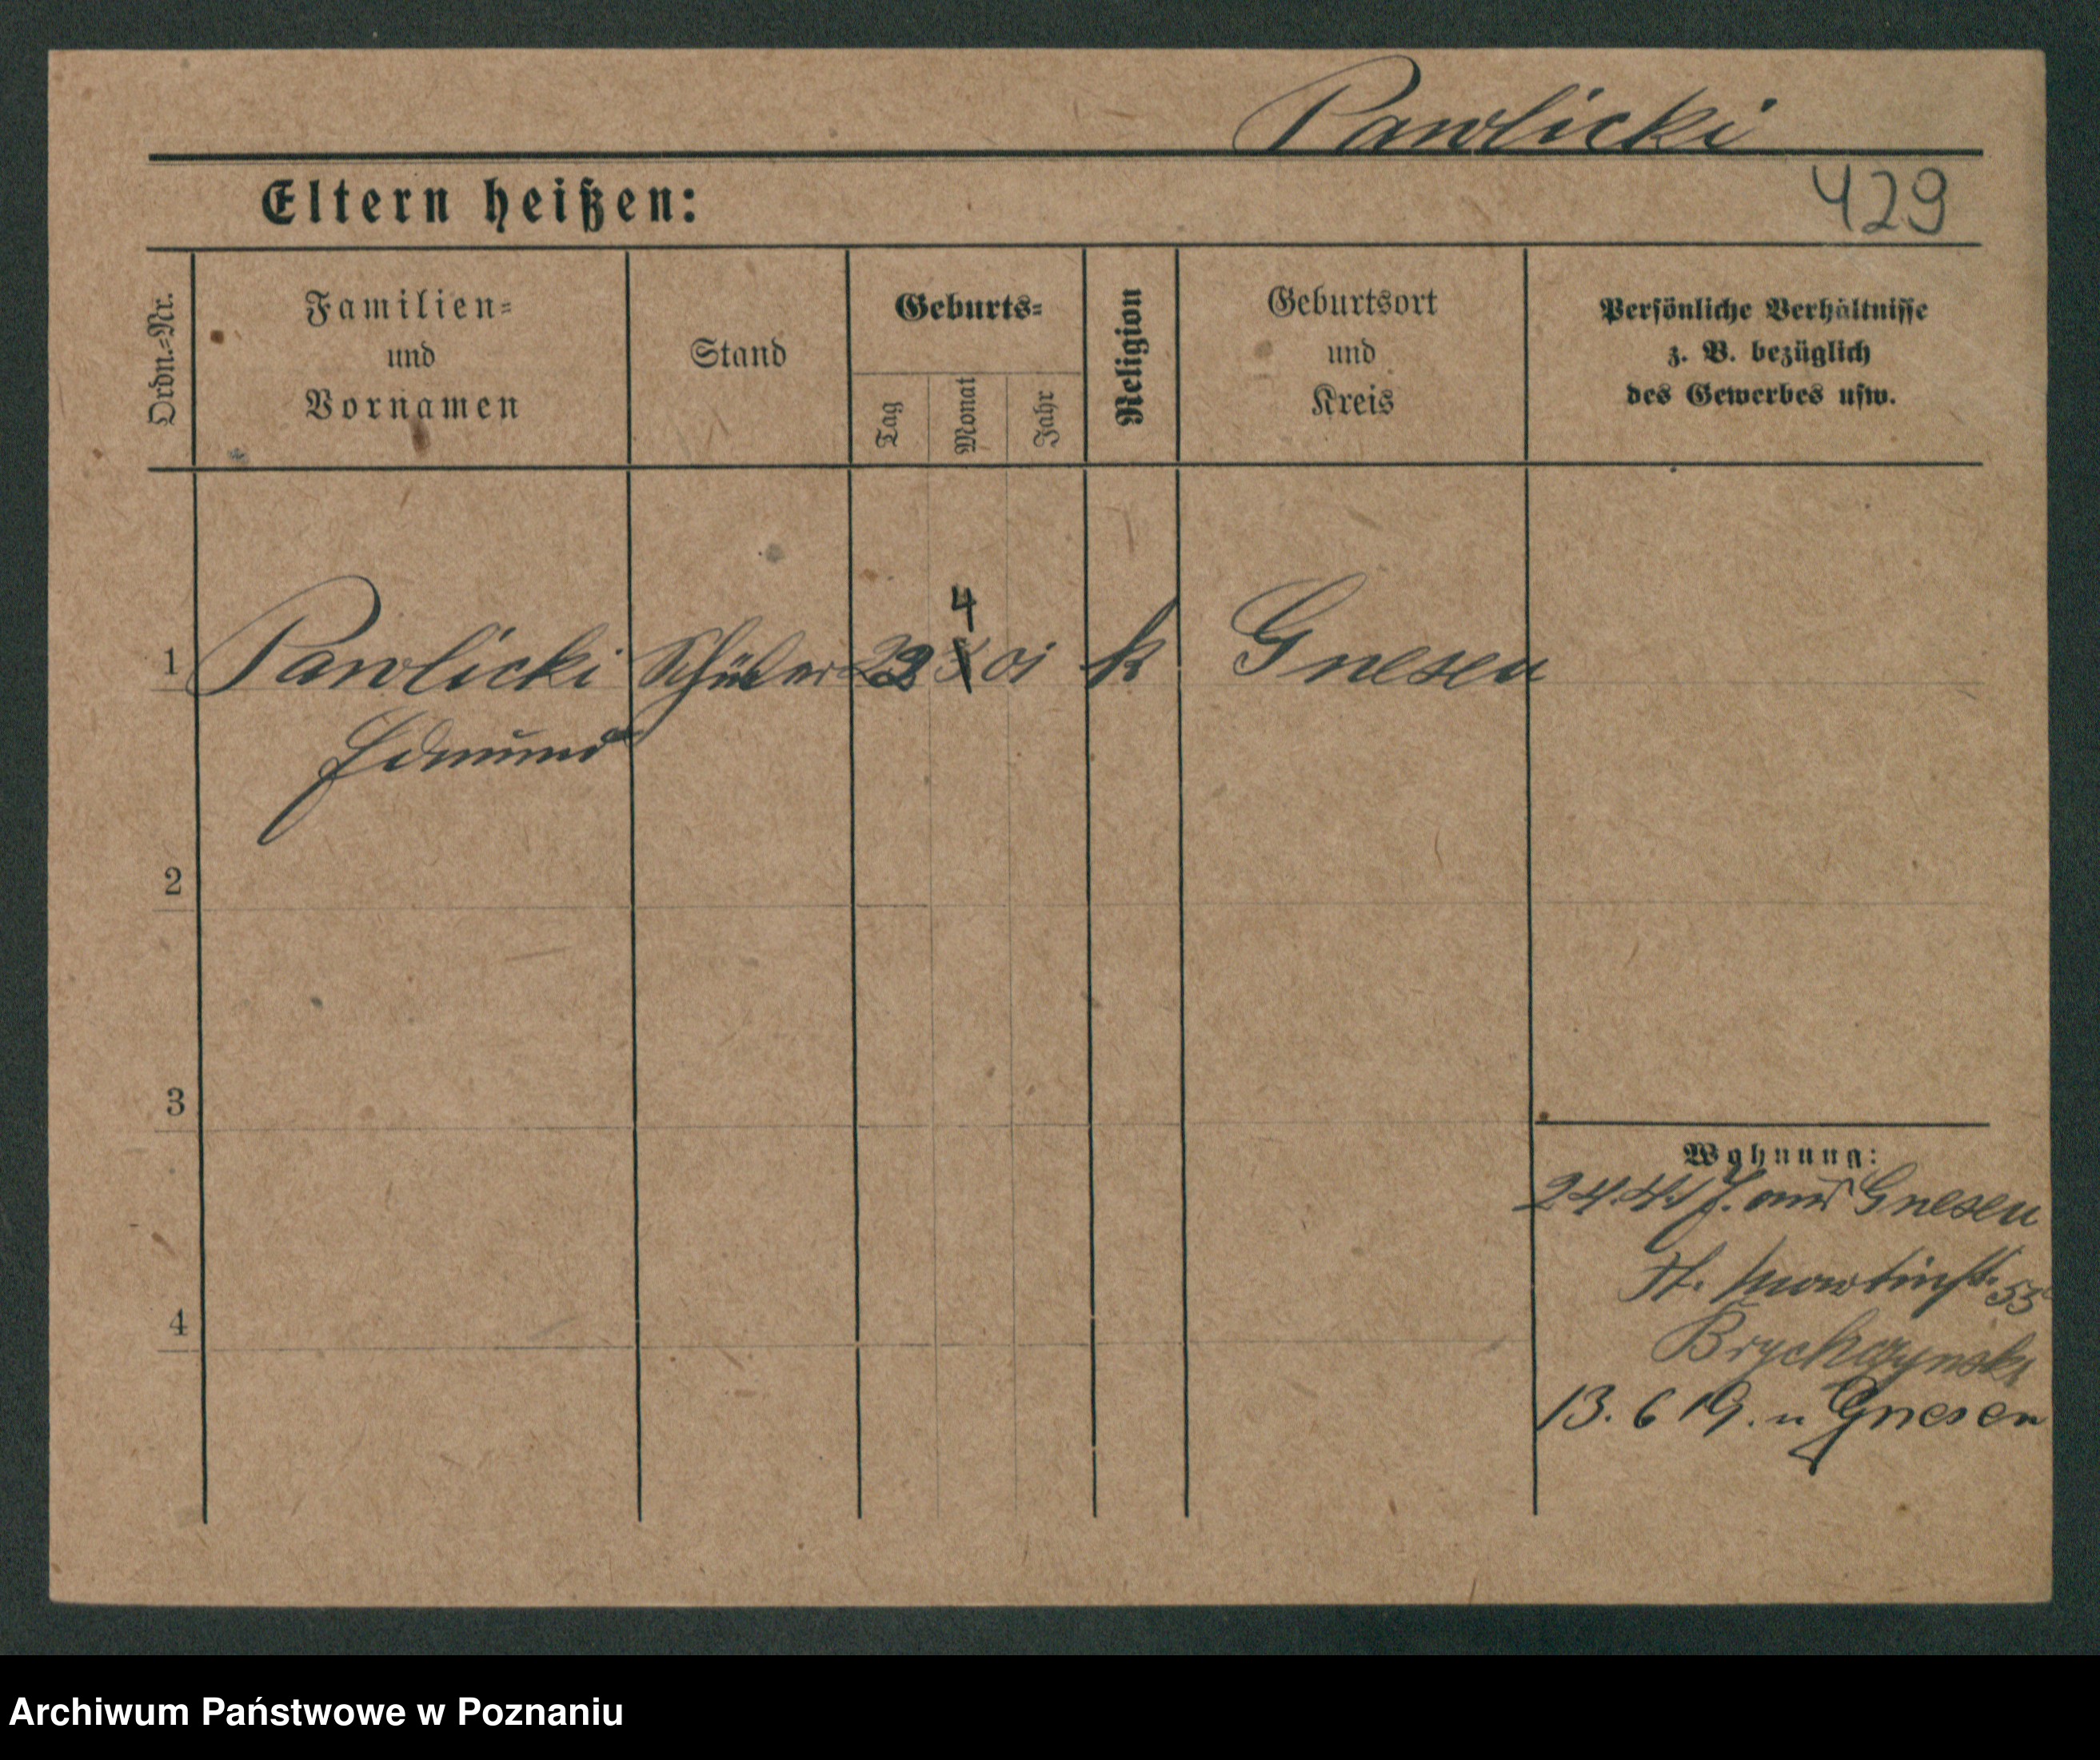 Pawlicki
Eltern heißen:
429
Ordn.=Nr.
Familien=
und
Vornamen
Stand
Geburts=
Tag
Monat
Jahr
Religion
Geburtsort
und
Kreis
Persönliche Verhältnisse
z. B. bezüglich
des Gewerbes usw.
4
1 Pawlicki Schüler 01 k Gnesen
Edmund
2
3
4
Wohnung:
Gnesen
St. Martinstr. 53
Brychczynski
13. 6 19. n Gnesen
Archiwum Państwowe w Poznaniu